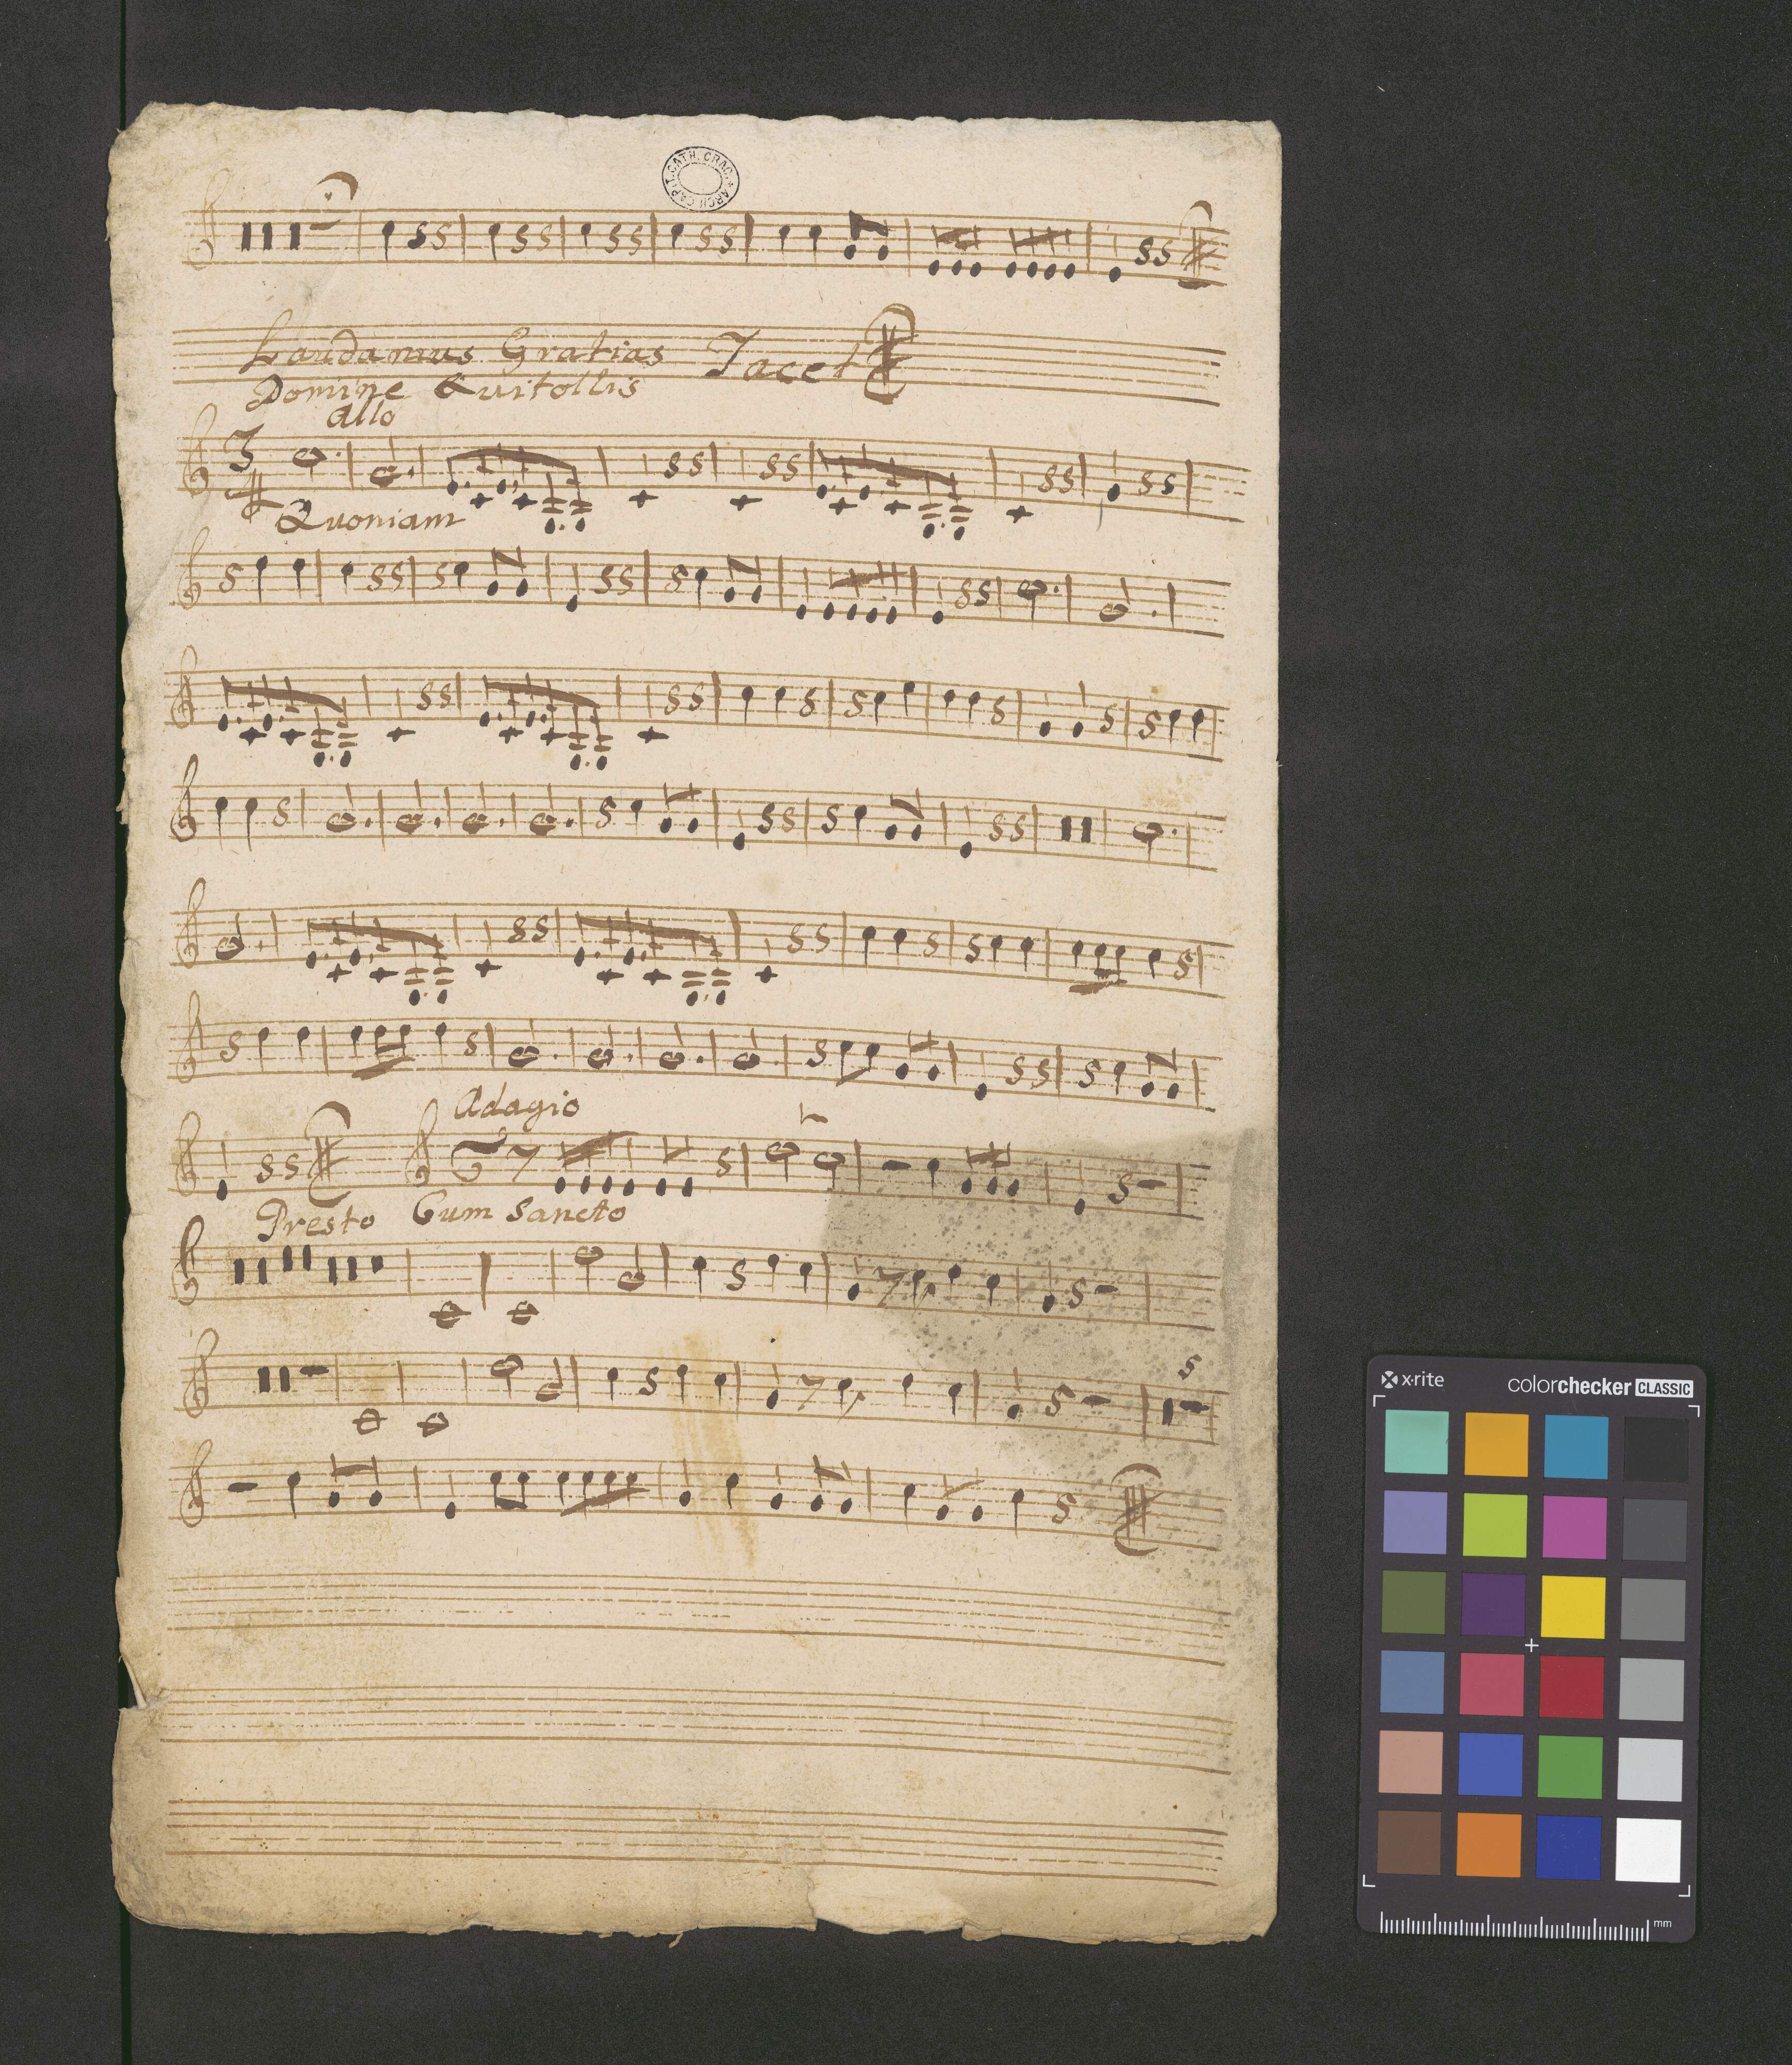 ARCH. CAPIT. CATH. CRAC.
Laudamus Gratias Tacet
Domine Quitollis
Allo
3
4
Quoniam
Adagio
Presto Cum Sancto
x-rite colorchecker CLASSIC
mm